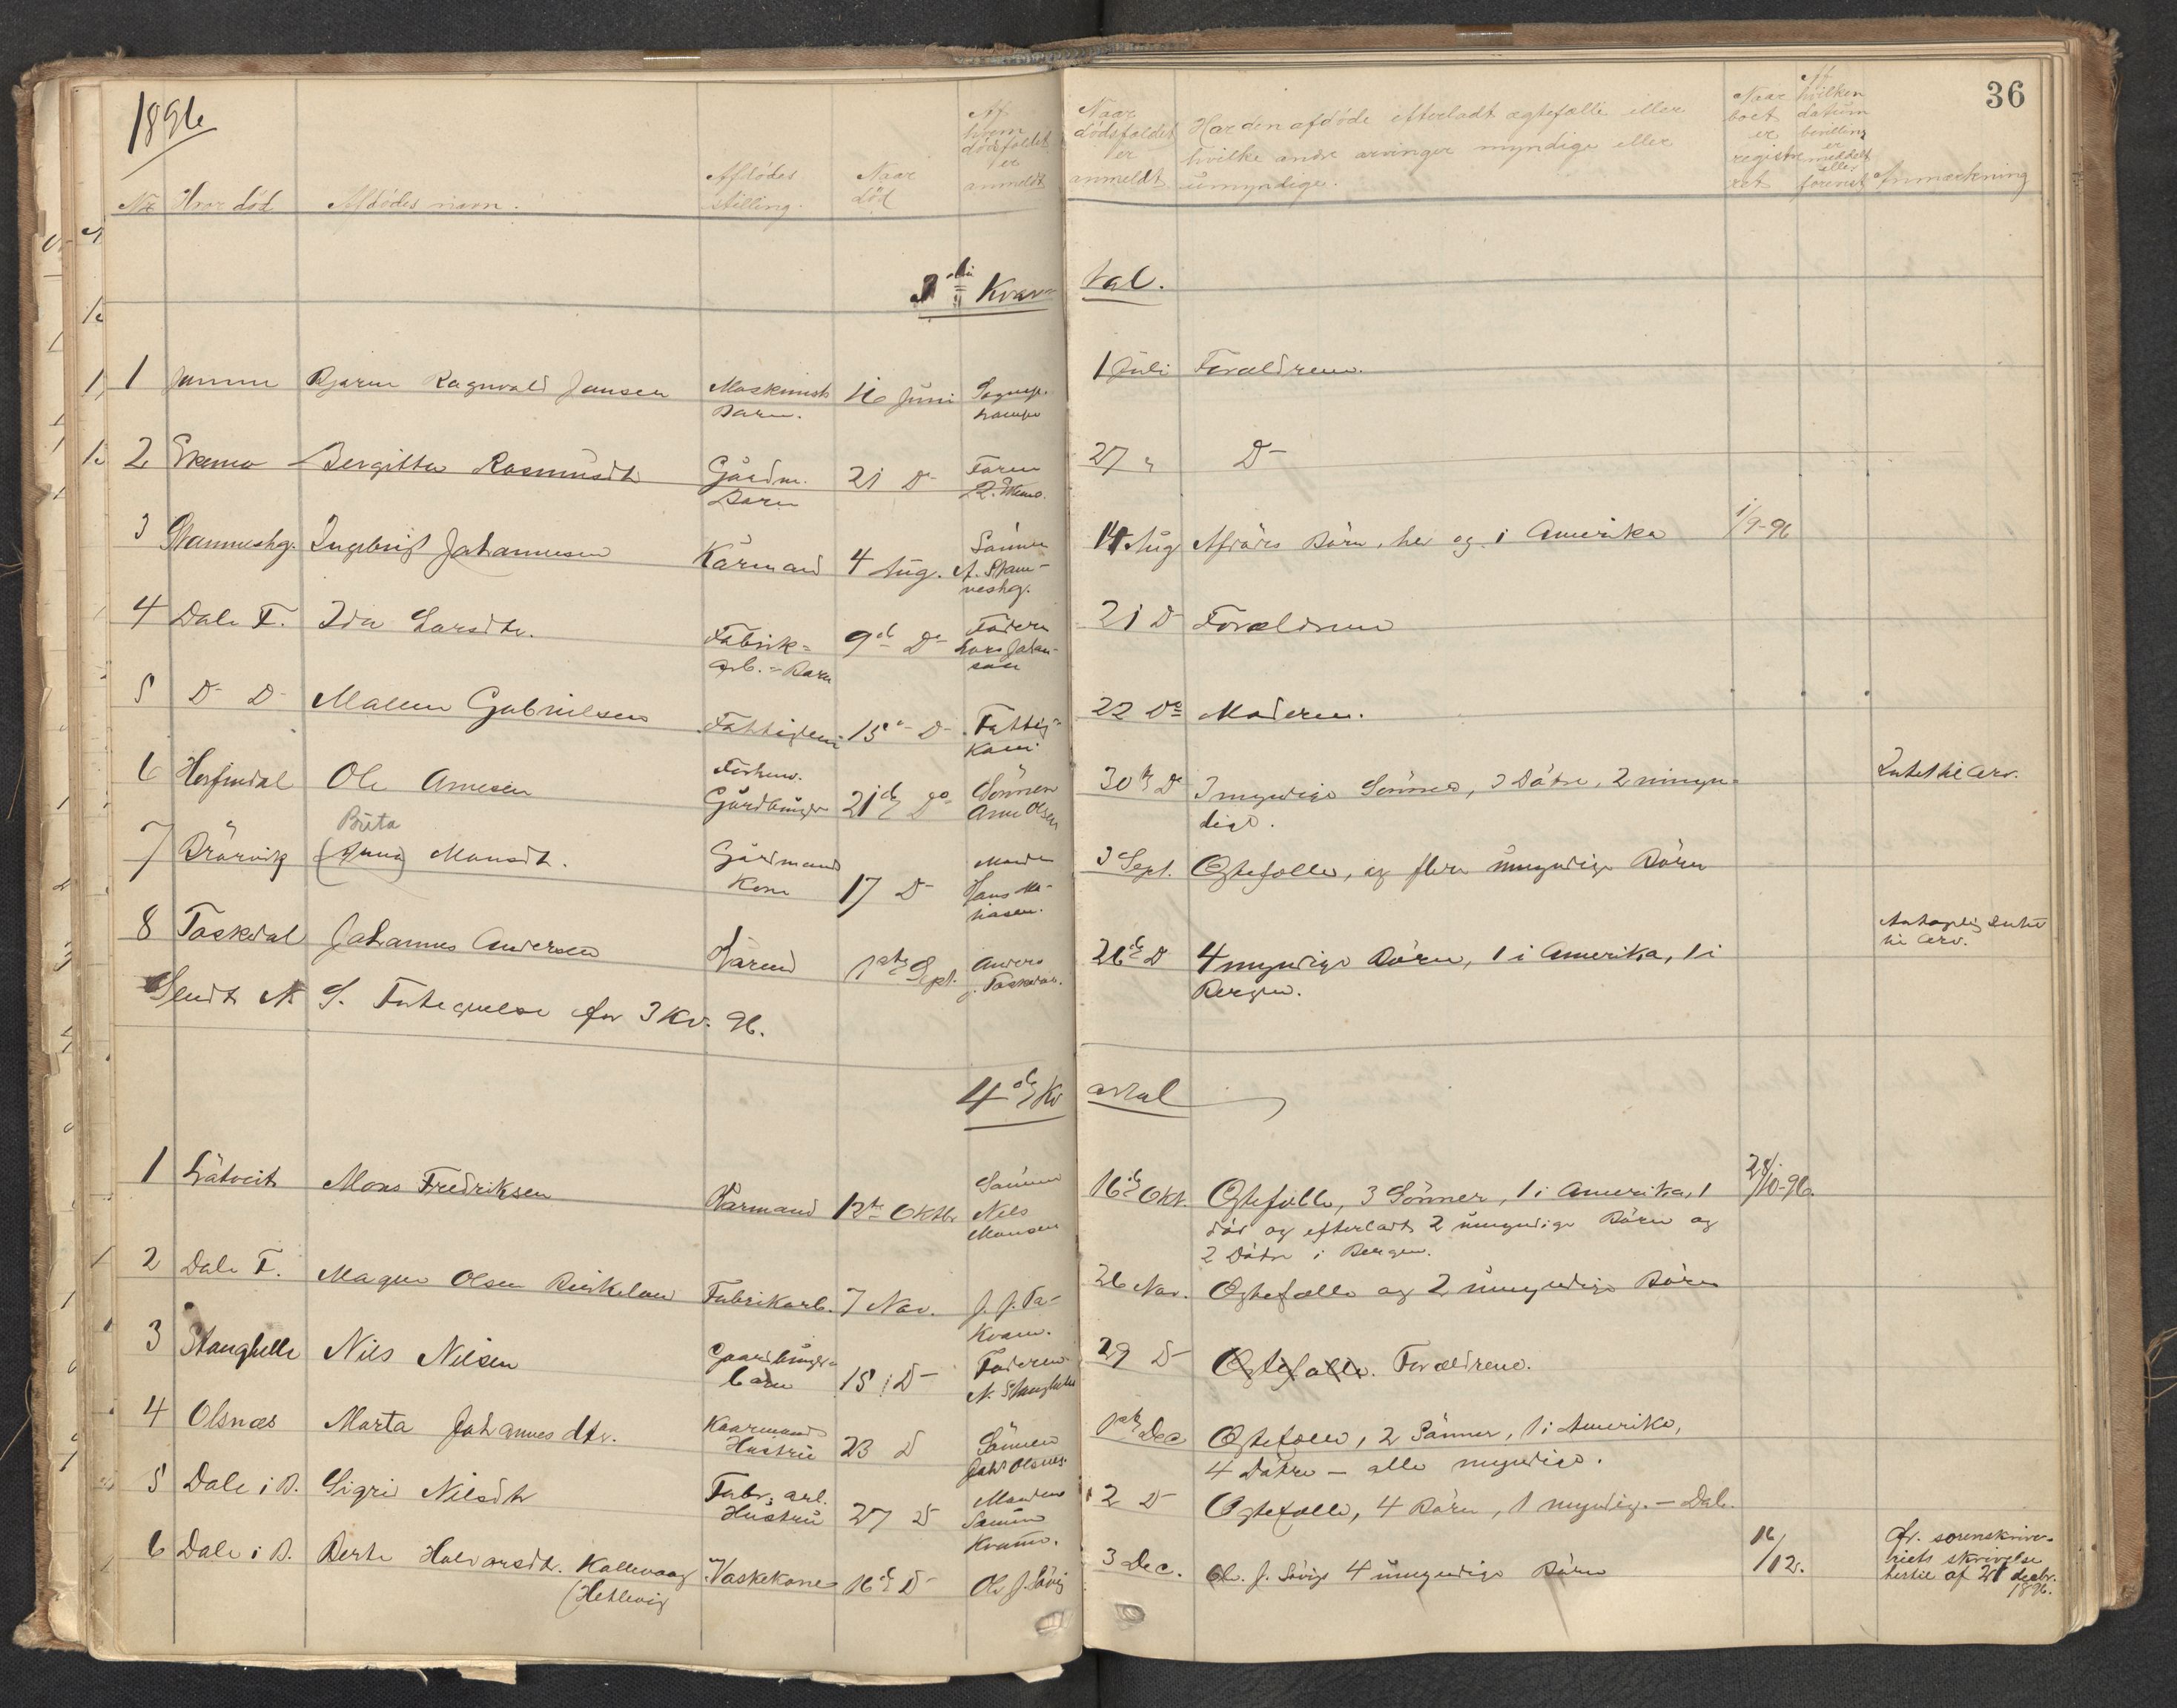 1896
36
No
Hvor död
Afdödes navn.
Afdödes
stilling.
Naar
död
Af
hvem
dödsfaldet
er
anmeldt
Naar
dödsfaldet
er
anmeldt
Har den afdöde efterladt ægtefælle eller
hvilke andre arvinger myndige eller
umyndige.
Naar
boet
er
registre
ret
Af
hvilken
datum
bevilling
er
meddelt
eller
forevist
Anmærkning
3die Kvar-
tal.
1 Bjarne Ragnvald Jansen Maskinist 16 Juni
Barn.
1 Juli Forældrene.
2 Bergitta Rasmusdt Gårdm. 21 Do Faren
Barn
27 " Do
3 Stamneshg. Ingebrigt Johannesen Kårmand 4 Aug. Sönnen
A. Stam-
neshg.
14 Aug Afdödes Börn, her og i Amerika 1/9-96
4 Dale F. Ida Larsdtr. Fabrik- 9de Do Faderen
arb.-Barn Lars Johan-
sen
21 Do Forældrene
5 Do Do Malene Gabrielsen Fattiglem 15de Do Fattig-
kom.
22 Do Moderen.
6 Herfindal Ole Arnesen Forhenv.
Gårdbruger 21de Do Sönnen
Arne Olsen
30te Do 3 myndige Sönner, 3 Dötre, 2 umyn-
dige.
Intet til Arv.
7 Brörvik (Anna) Monsdt. Gårdmand
Brita
Kone 17 Do Manden
Hans Ma-
tiasen.
3 Sept. Ægtefælle, og flere umyndige Börn
8 Toskedal Johannes Andersen Kårmd 1ste Sept. Anders
J. Toskedal.
26de Do 4 myndige Börn, 1 i Amerika, 1 i
Bergen.
Antagelig Intet
til Arv.
Sendt N S. Fortegnelse for 3 Kv. 96.
4de Kv
artal
1 Låtveit Mons Fredriksen Kårmand 12te Oktbr Sönnen
Nils
Monsen
16de Okt. Ægtefælle, 3 Sönner, 1 i Amerika, 1
död og efterladt 2 umyndige Börn og
2 Döttre i Bergen.
28/10-96.
2 Dale F. Magne Olsen Birkeland Fabrikarb. 7 Nov. J. J. Fa-
Kvam.
26 Nov. Ægtefælle og 2 umyndige Börn
3 Stanghelle Nils Nilsen Gaardbruger-
barn 15 Do Faderen
N. Stanghelle
29 Do Ægtefælle. Forældrene.
4 Olsnæs Marta Johannesdtr. Kaarmands
Hustru 23 Do Sönnen
Johs Olsnes.
1ste Dec Ægtefælle, 2 Sönner, 1 i Amerika,
4 Dötre – alle myndige.
5 Dale i B. Sigrid Nilsdtr Fabr. arb.
Hustru 27 Do Manden
Kvamme.
2 Do Ægtefælle, 4 Börn, 1 myndig. – Dale.
6 Dale i B. Berte Halvorsdt. Kallevaag Vaskekone 16de Do Ole J. Lövig
(Hetlevig
3 Dec. Ol. J. Lövigs 4 umyndige Börn
16/12.
Cfr. sorenskrive-
riets skrivelse
hertil af 21 decbr.
1896.